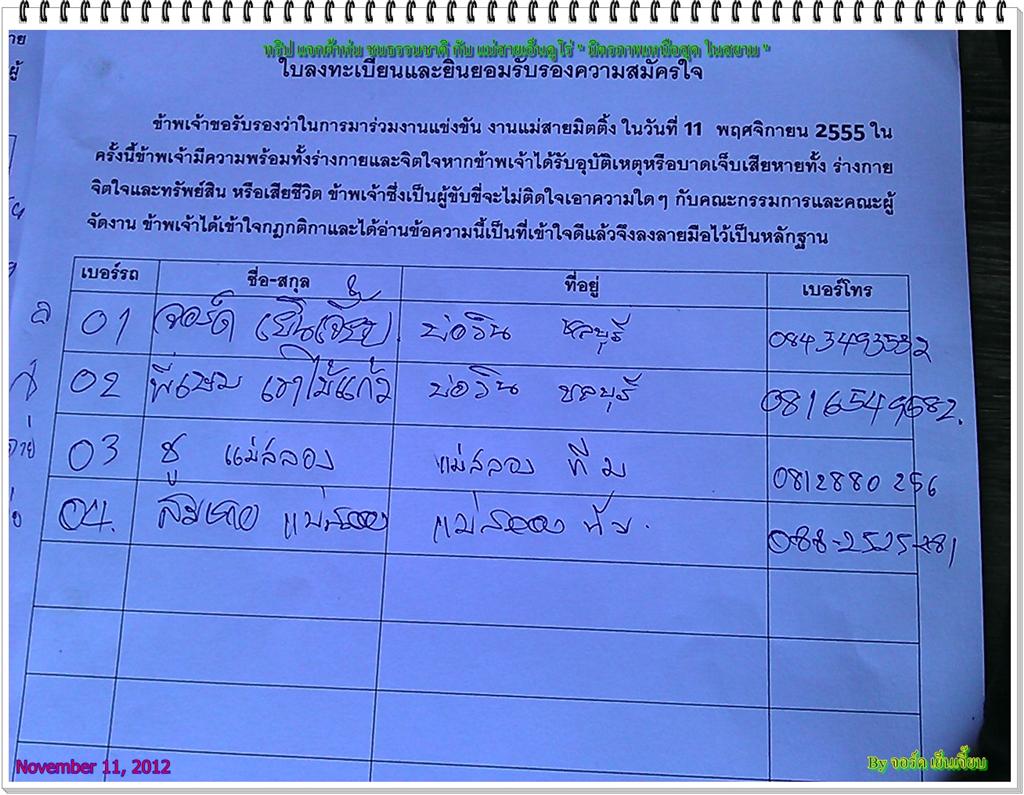 ทริป แจกผ้าห่ม ชมธรรมชาติ กับ แม่สายเอ็นดูโร่ " มิตรภาพเหนือสุด ในสยาม "
ใบลงทะเบียนและยินยอมรับรองความสมัครใจ
ข้าพเจ้าขอรับรองว่าในการมาร่วมงานแข่งขัน งานแม่สายมิตติ้ง ในวันที่ 11 พฤศจิกายน 2555 ใน
ครั้งนี้ข้าพเจ้ามีความพร้อมทั้งร่างกายและจิตใจหากข้าพเจ้าได้รับอุบัติเหตุหรือบาดเจ็บเสียหายทั้ง ร่างกาย
จิตใจและทรัพย์สิน หรือเสียชีวิต ข้าพเจ้าซึ่งเป็นผู้ขับขี่จะไม่ติดใจเอาความใดๆ กับคณะกรรมการและคณะผู้
จัดงาน ข้าพเจ้าได้เข้าใจกฎกติกาและได้อ่านข้อความนี้เป็นที่เข้าใจดีแล้วจึงลงลายมือไว้เป็นหลักฐาน
เบอร์รถ ชื่อ-สกุล ที่อยู่ เบอร์โทร
01 จอร์ด เย็นเจี๊ยบ. บ่อวิน ชลบุรี 0843493532
02 พี่เษม เขาไม้แก้ว บ่อวิน ชลบุรี 0816549682.
03 ชู แม่สลอง แม่สลอง ทีม 0812880256
04. แม่สลอง แม่สลอง ทีม. 088-2525-281
November 11, 2012
By จอร์ด เย็นเจี๊ยบ